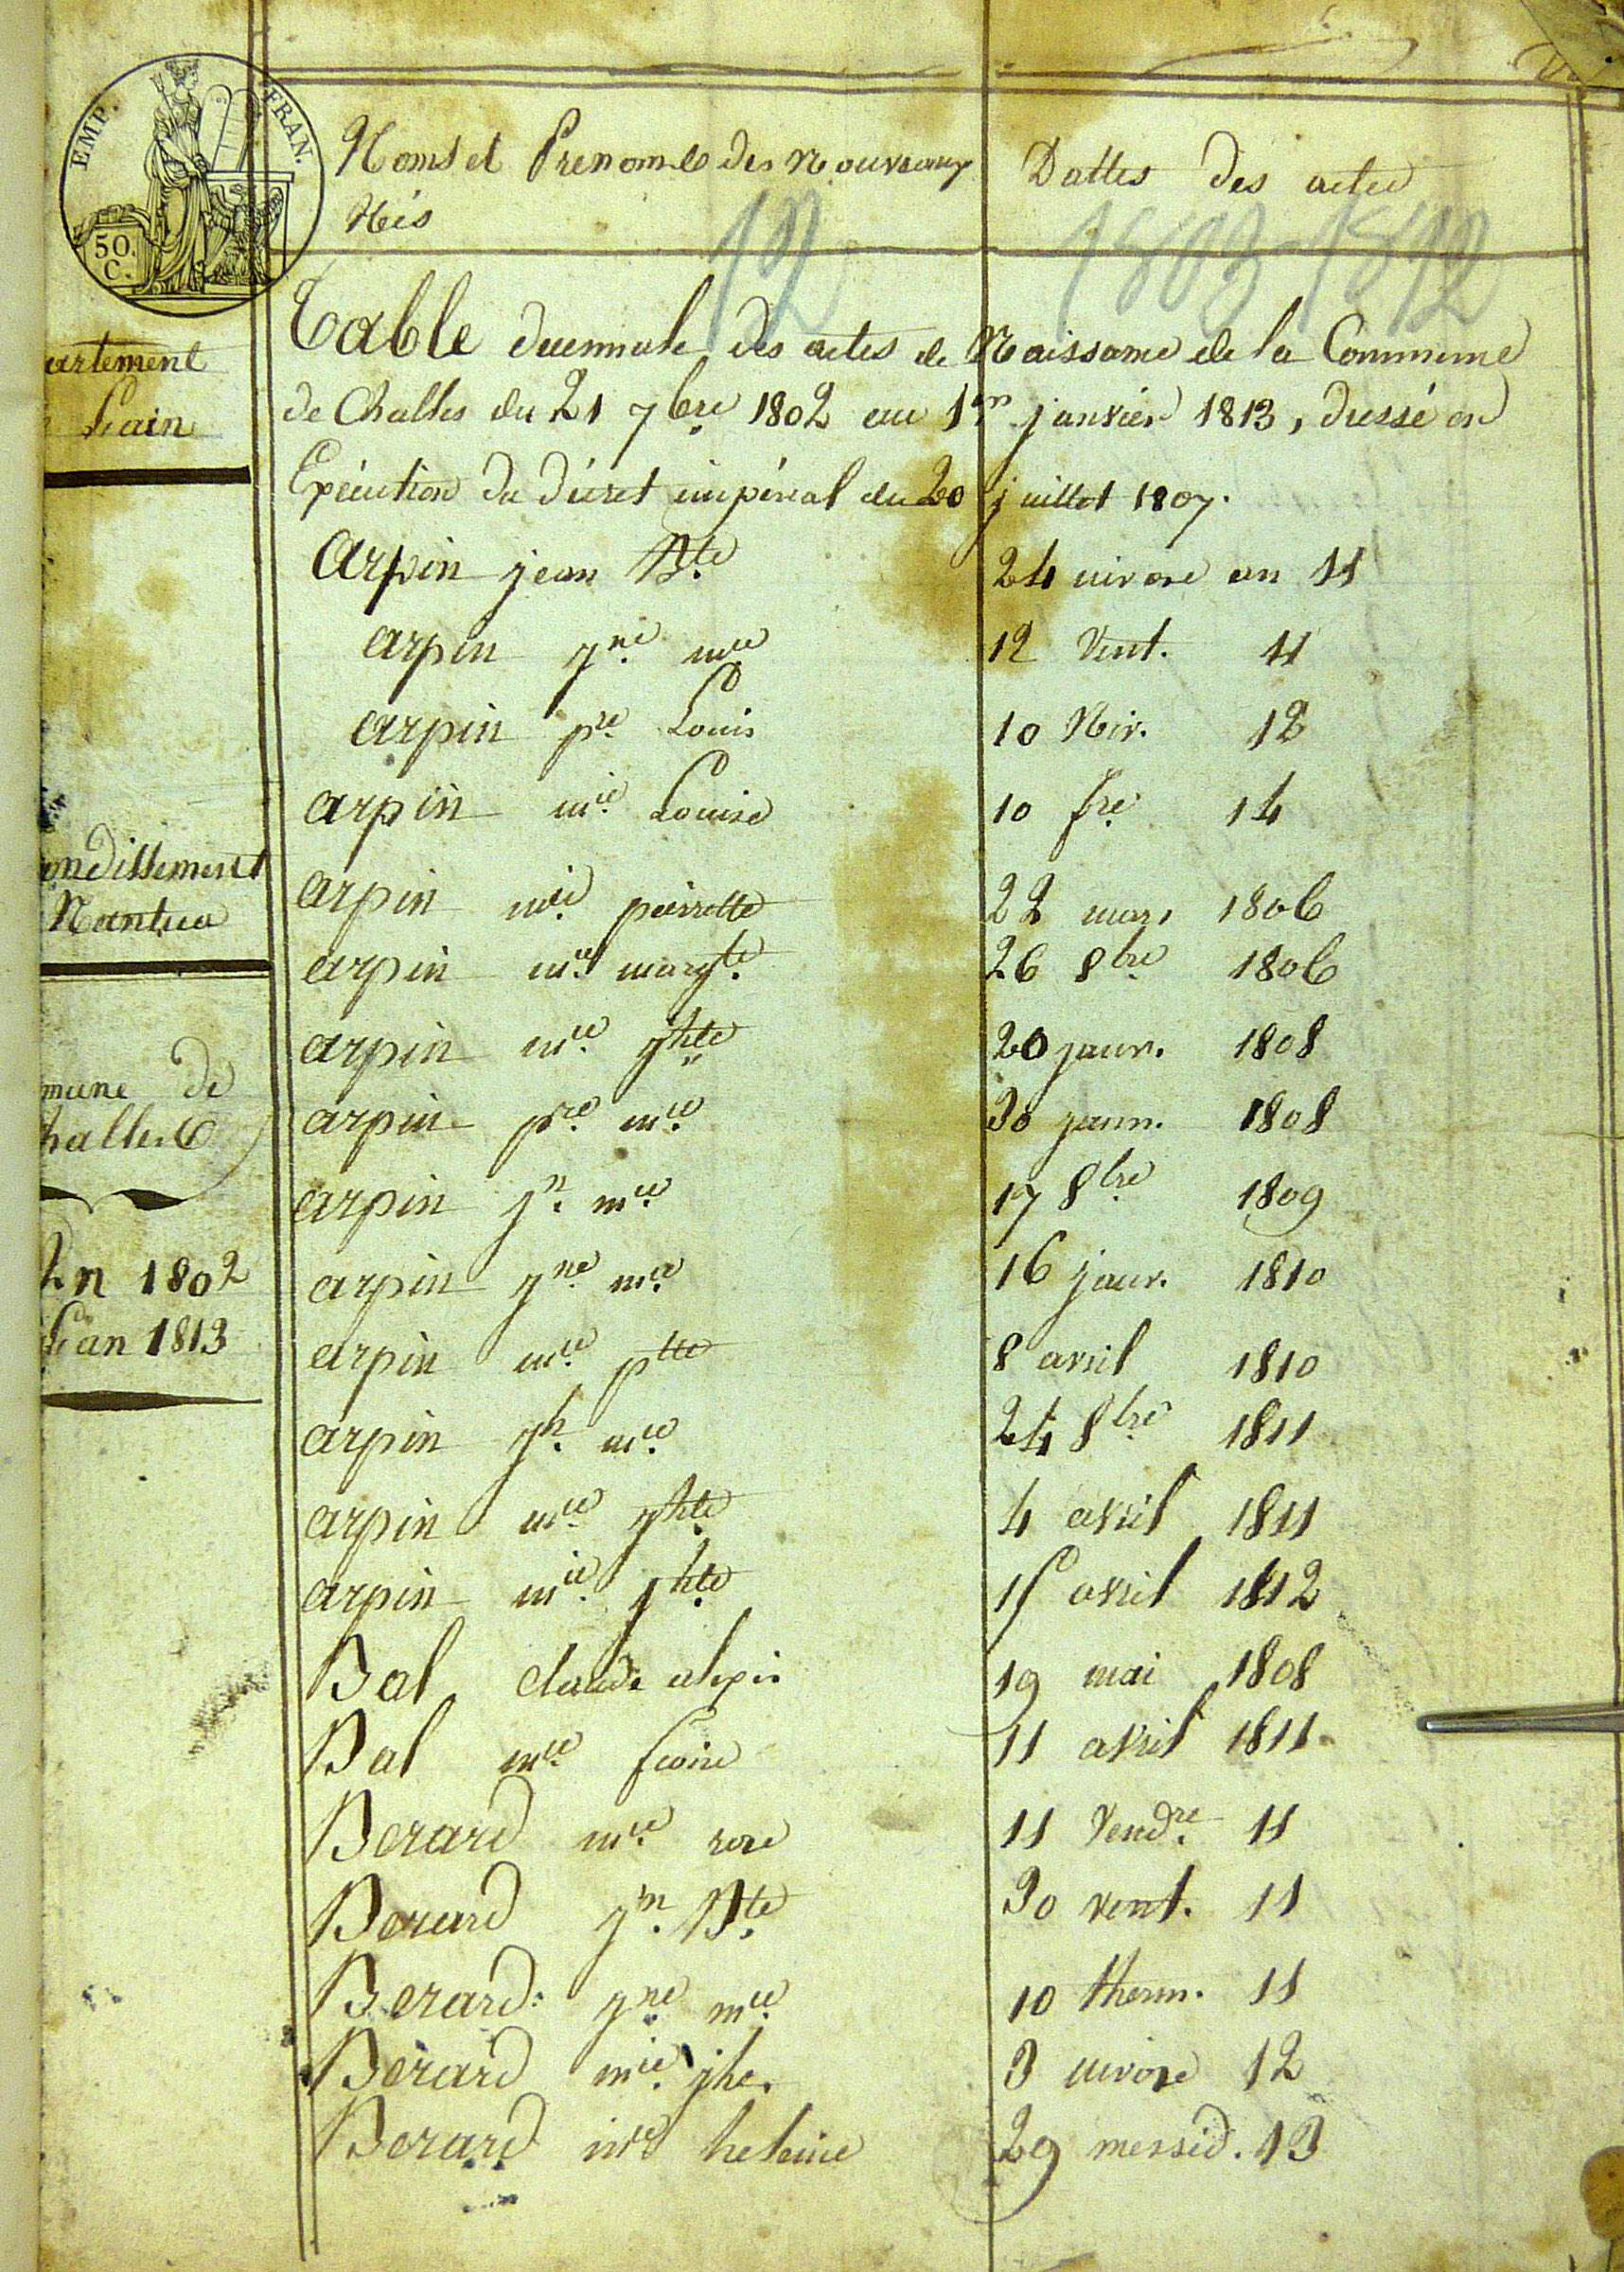 EMP. FRAN.
50.
C.
Noms et Prenoms des Nouveaux
Nés
Dattes des actes
12 1803-1812
artement
Lain
ondissement
Nantua
mune de
halles
Dn 1802
Lan 1813
Table decennale des actes de Naissance de la Commune
de Challes du 21 7bre 1802 au 1er janvier 1813, dressé en
Exécution du décret impérial du 20 juillet 1807.
Arpin jean Bte 24 nivose an 11
arpin jne mie 12 Vent. 11
arpin pre Louis 10 Niv. 12
arpin mie Louise 10 fre 14
arpin mie pierrette 22 mars 1806
arpin mie margte 26 8bre 1806
arpin mie jhte 20 janv. 1808
arpin pre mie 30 janv. 1808
arpin jn. mie 17 8bre 1809
arpin jne mie 16 janv. 1810
arpin mie ptte 8 avril 1810
arpin jh. mie 24 8bre 1811
arpin mie jhte 4 avril 1811
arpin mie jhte 15 avril 1812
Bal claude alexis 19 mai 1808
Bal mie 11 avril 1811
Berard mie rose 11 Vendre 11
Berard jn. Bte 30 vent. 11
Berard jne mie 10 therm. 11
Berard mie jhe. 3 nivose 12
Berard mie heleine 29 messid. 13